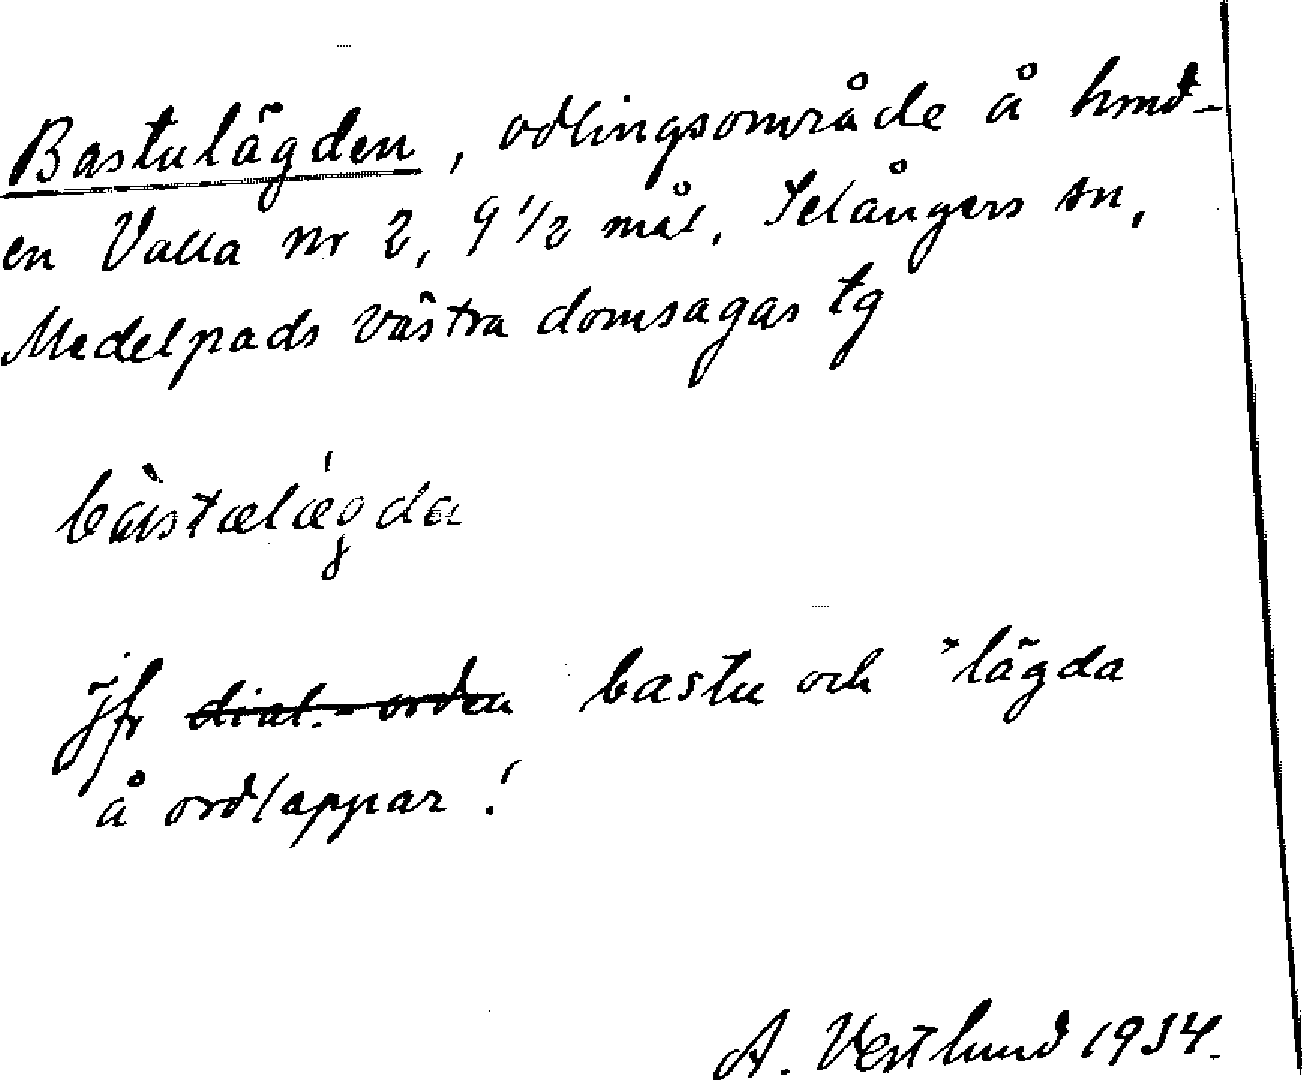 Bastulägden, odlingsområde å hmd-
en Valla nr 2, 9 1/2 mål, Selångers sn,
Medelpads västra domsagas tg
Jfr dial.-orden bastu och *lägda
å ordlappar!
A. Vestlund 1934.